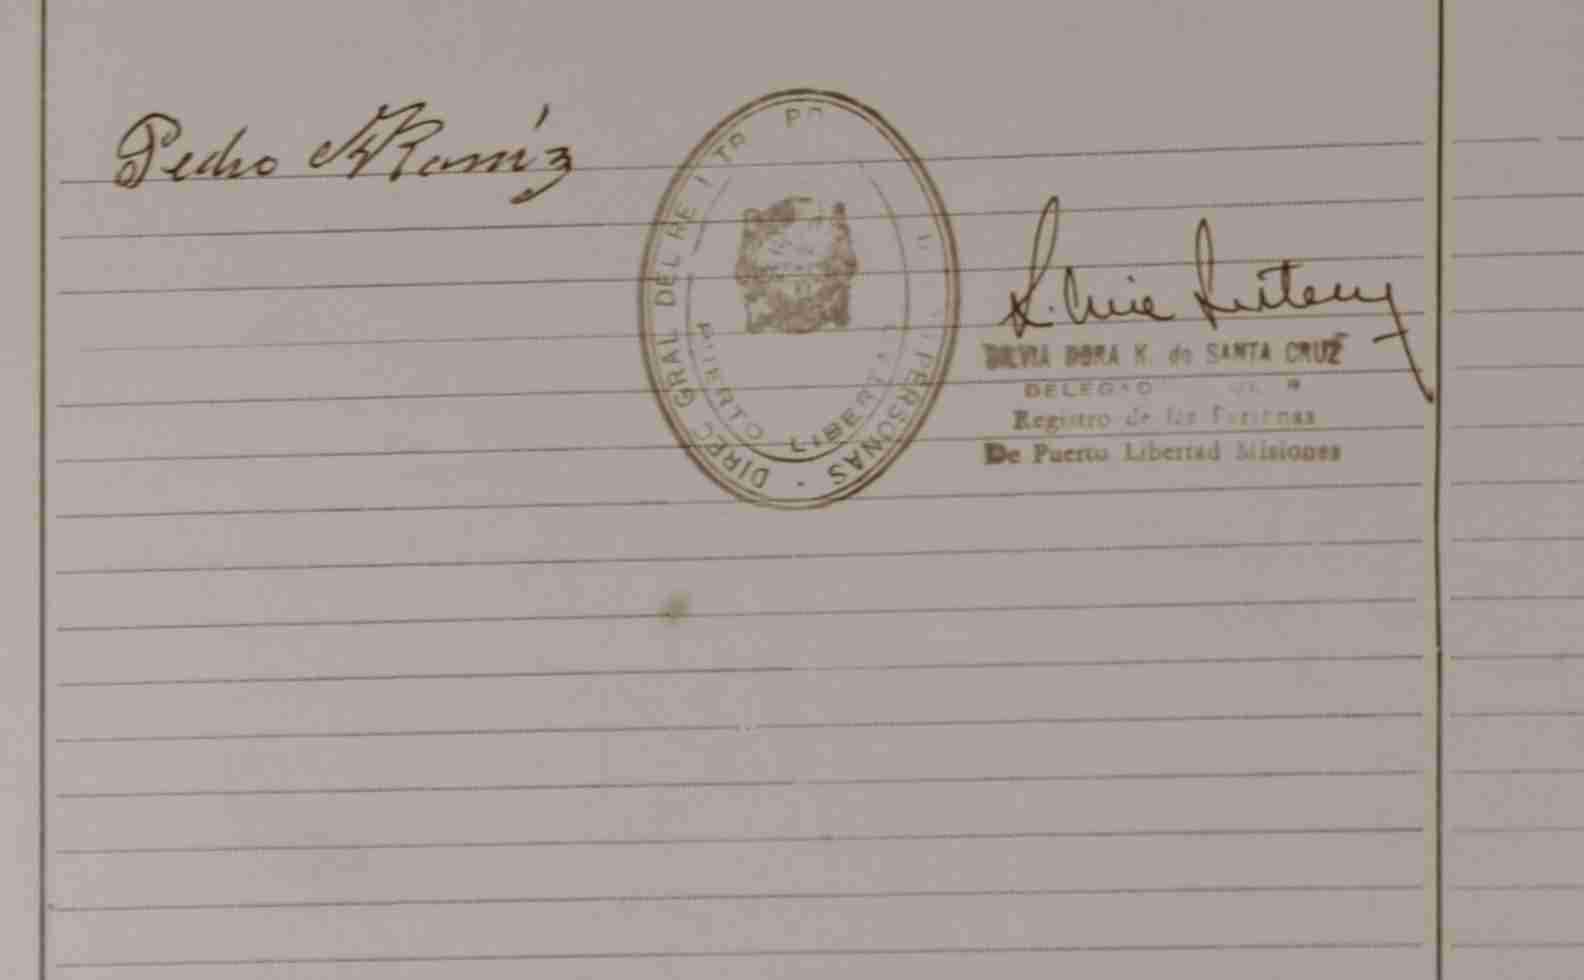 Pedro Ramíz
DIREC GRAL DEL RE I TR PR PERSONAS -
PUERTO LIBERT
SILVIA DORA K. de SANTA CRUZ
DELEGAD
Registro de las Personas
De Puerto Libertad Misiones